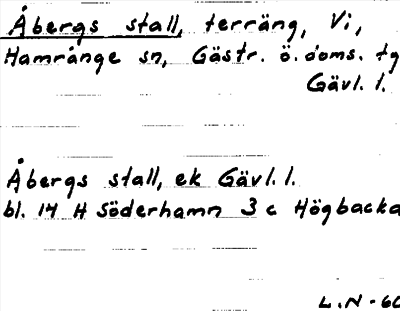 Åbergs stall, terräng, Vi,
Hamrånge sn, Gästr. ö. doms. tg
Gävl. l.
Åbergs stall, ek Gävl. l.
bl. 14 H Söderhamn 3 c Högbacka
L.N-60